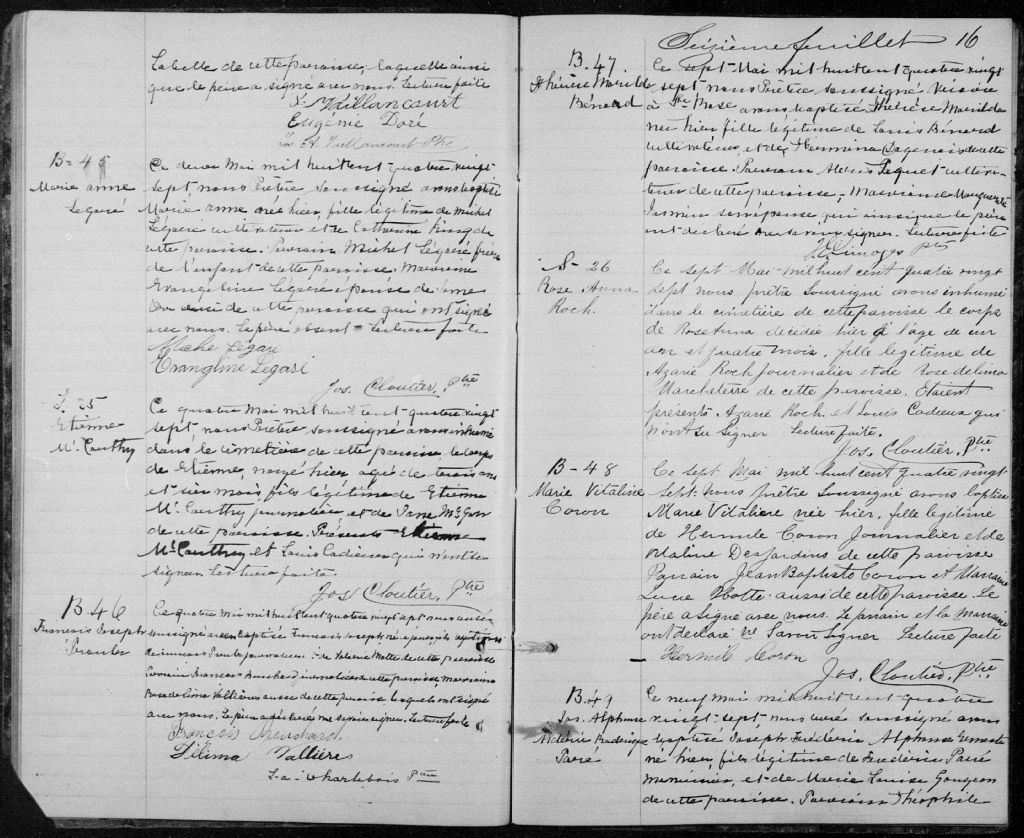 Labelle de cette paroisse, laquelle ainsi
que le père a signé avec nous. Lecture faite
S. Vaillancourt
Eugénie Doré
Jos. A. Vaillancourt Ptre
B-45
Marie anne
Legaré
Ce deux Mai mil huit cent quatre vingt
sept, nous Prêtre soussigné avons baptisé
Marie anne née hier, fille légitime de Michel
Légaré cultivateur et de Catherine King de
cette paroisse. Parrain Michel Légaré frère
de l'enfant de cette paroisse Marraine
Evangeline Légaré épouse de
aussi de cette paroisse qui ont signé
avec nous. Le père absent - Lecture faite
Legaré
Evangline Legaré
Jos. Cloutier, Ptre
S. 25
Etienne
Mc Cauthry
Ce quatre Mai mil huit cent quatre vingt
sept nous Prêtre soussigné avons inhumé
dans le cimetière de cette paroisse, le corps
de Etienne, noyé hier, âgé de trois ans
et six mois, fils légitime de Etienne
Mc Cauthry journalier et de Jane Mc
de cette paroisse. Présents Etienne
Mc Cauthry et Louis Cadieux qui n'ont su
signer Lecture faite.
Jos. Cloutier, Ptre
B. 46
Francois Joseph
Ce quatre Mai mil huit cent quatre vingt sept nous
soussigné avons baptisé Francois Joseph né
de cette paroisse
Parrain Francois Bouchard de cette paroisse, Marraine
Rose de Lima Vallières aussi de cette paroisse, lesquels ont signé
avec nous. Le père a déclaré ne savoir signer. Lecture faite
François Bouchard
Délima Vallières
J-a-Chartebois Ptre
Seizième feuillet 16
B. 47.
Thérèse Marilda
Benard
Ce sept Mai mil huit cent quatre vingt
sept nous Prêtre soussigné
à Ste Rose avons baptisé Thérèse Marilda
née hier fille légitime de Louis Bénard
cultivateur, et de Hermina Dagenais de cette
paroisse. Parrain Paquet cultiva-
teur de cette paroisse, Marraine Marguerite
Jasmin son épouse qui ainsi que le père
ont déclaré ne savoir signer. Lecture faite
Limoges Ptre
S-26
Rose Anna
Roch.
Ce sept Mai mil huit cent quatre vingt
sept nous prêtre soussigné avons inhumé
dans le cimetière de cette paroisse le corps
de Rose Anna décédée hier à l'âge de un
an et quatre mois, fille légitime de
Azarie Roch journalier et de Rose de lima
Marcheterre de cette paroisse. Etaient
présents Azarie Roch et Louis Cadieux qui
n'ont su signer Lecture faite.
Jos. Cloutier, Ptre
B-48
Marie Vitaline
Coron
Ce sept Mai mil huit cent quatre vingt
sept nous prêtre soussigné avons baptisé
Marie Vitaline née hier, fille légitime
de Hermile Coron Journalier et de
Odaline Desjardins de cette paroisse
Parrain Jean Baptiste Coron et Marraine
Lucie Plotte aussi de cette paroisse Le
père a signé avec nous. Le parrain et la marraine
ont déclaré ne savoir signer Lecture faite
Hermile Coron
Jos. Cloutier, Ptre
B. 49
Jos. Alphonse
Frédérique
Paré
Ce neuf Mai mil huit cent quatre
vingt-sept, nous curé soussigné avons
baptisé Joseph Frédéric Alphonse Ernest
né hier, fils légitime de Frédéric Paré
menuisier, et de Marie Louise Gougeon
de cette paroisse. Parrain Théophile